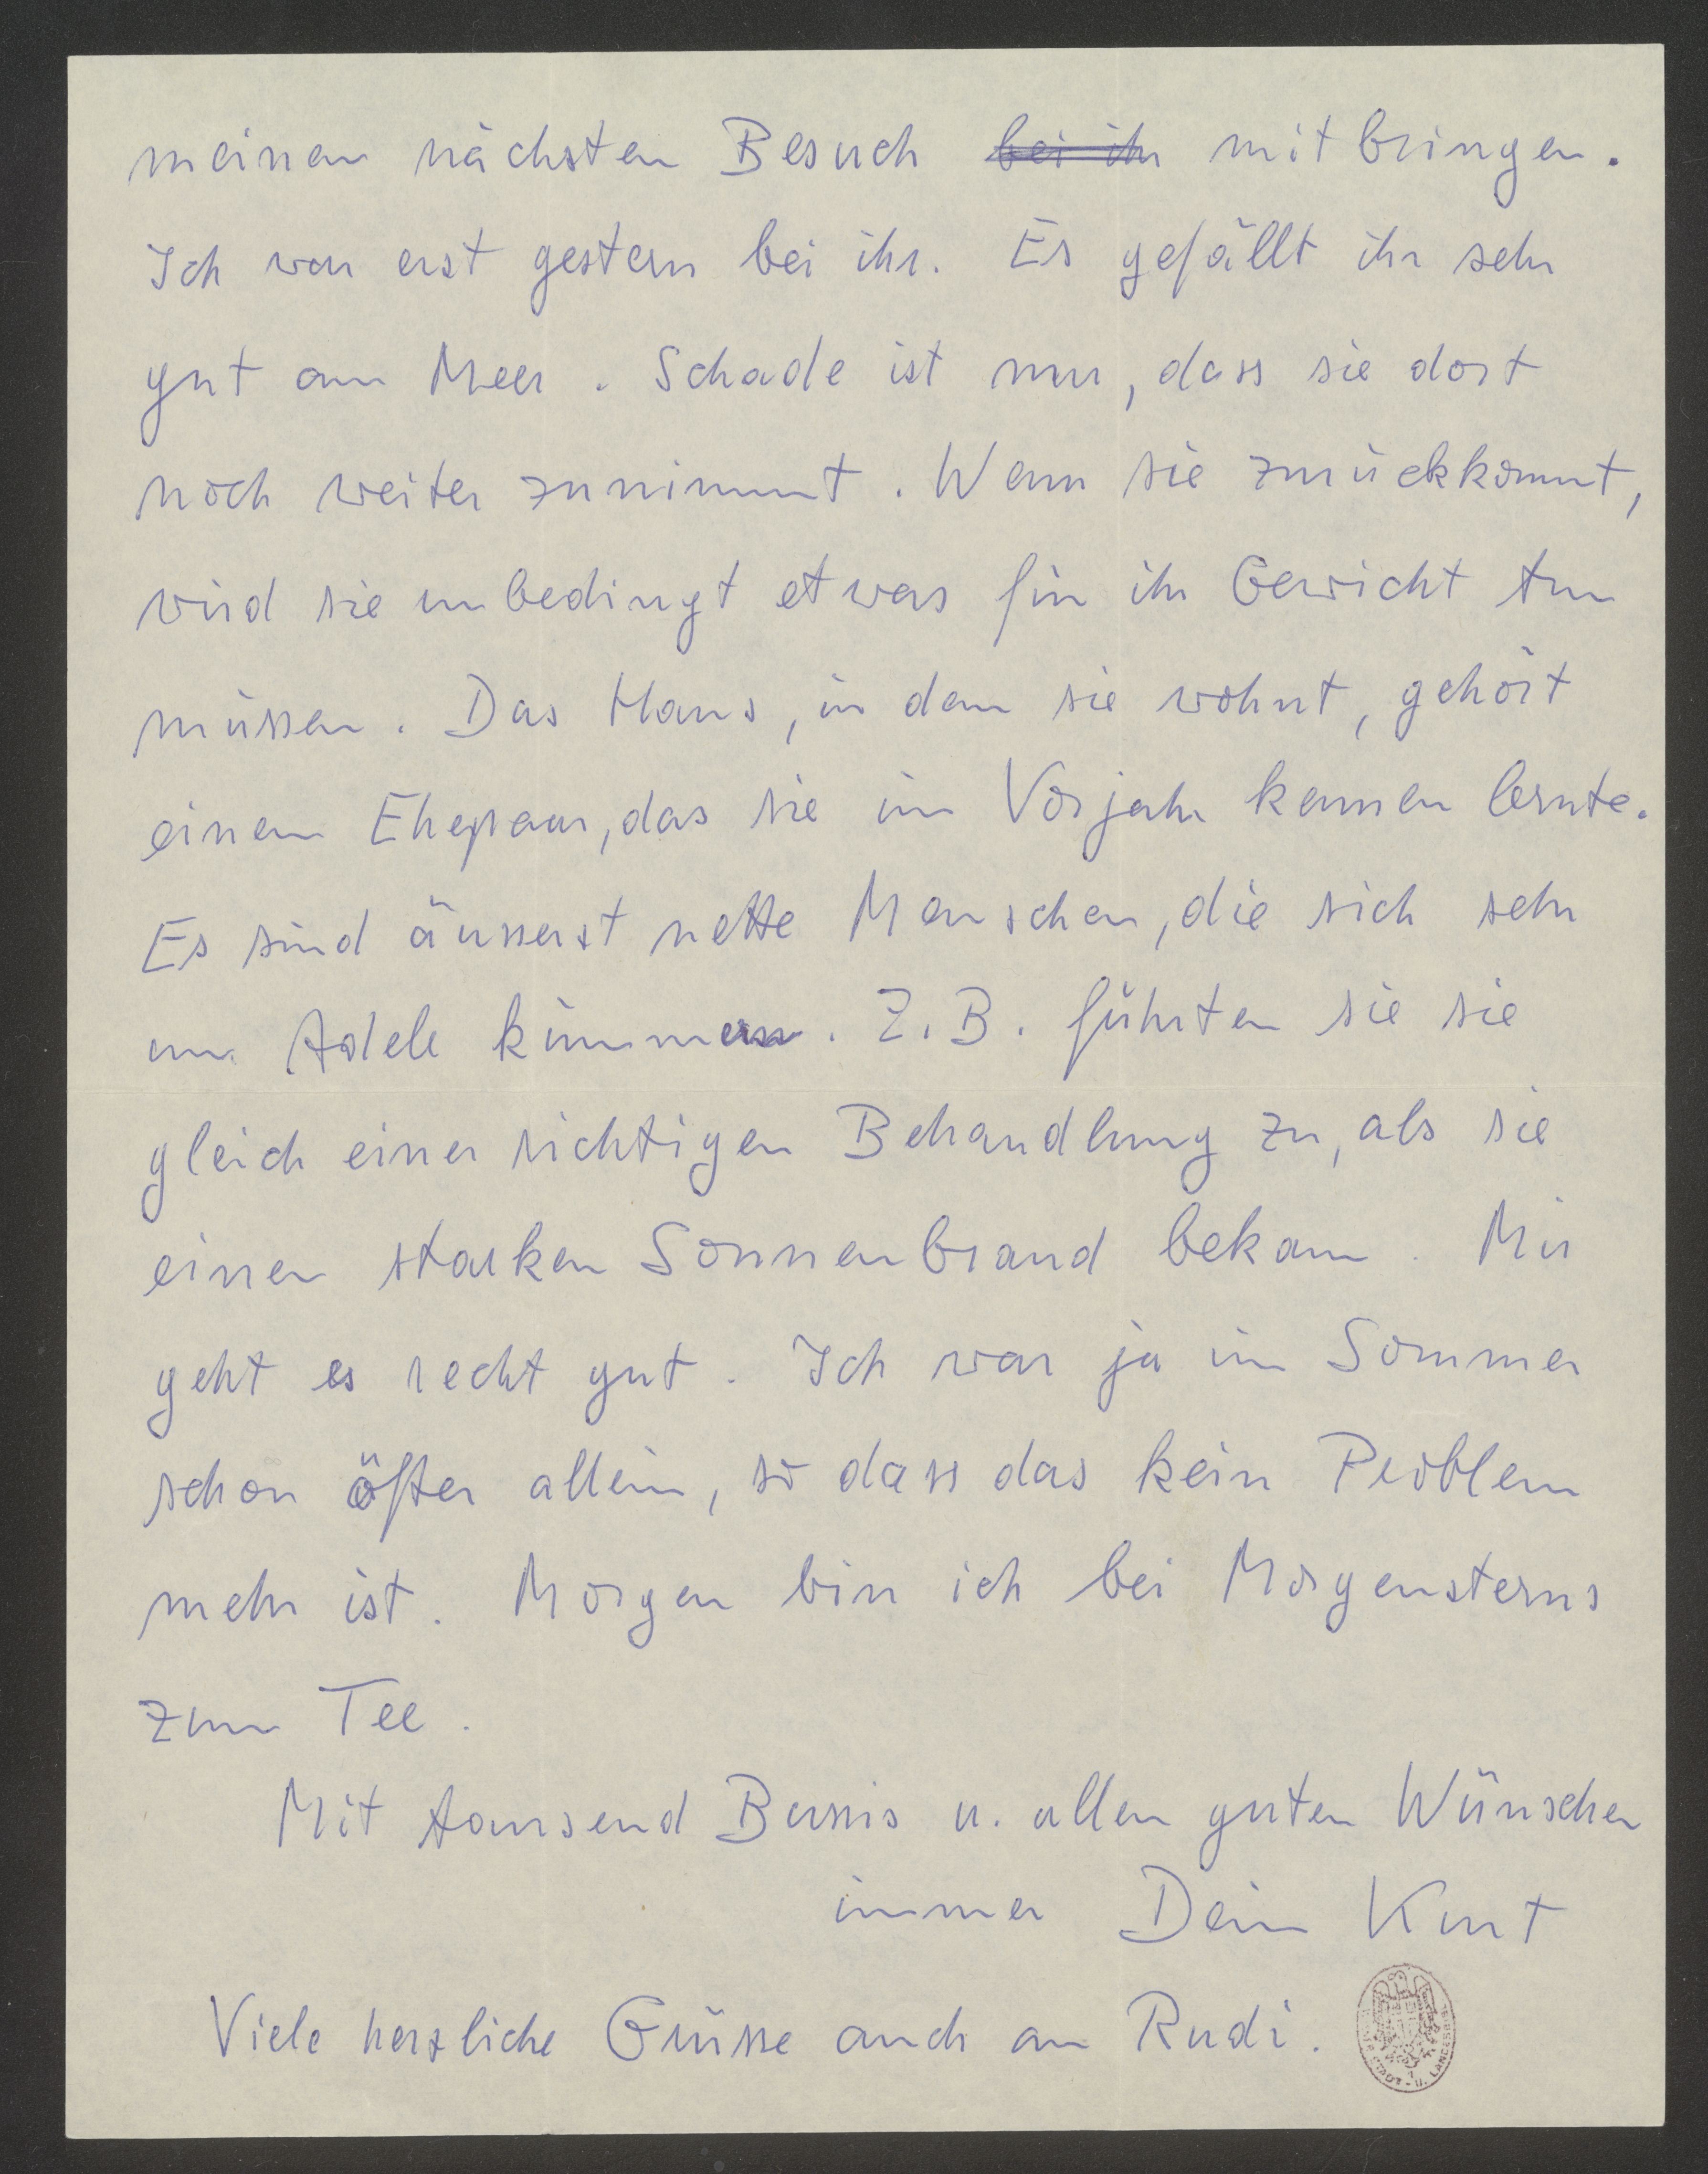 meinen nächsten Besuch bei ihr mitbringen.
Ich war erst gestern bei ihr. Es gefällt ihr sehr
gut am Meer. Schade ist nur, dass sie dort
noch weiter zunimmt. Wenn sie zurückkommt,
wird sie unbedingt etwas für ihr Gewicht tun
müssen. Das Haus, in dem sie wohnt, gehört
einem Ehepaar, das sie im Vorjahr kennen lernte.
Es sind äusserst nette Menschen, die sich sehr
um Adele kümmern. Z.B. führten sie sie
gleich einer richtigen Behandlung zu, als sie
einen starken Sonnenbrand bekam. Mir
geht es recht gut. Ich war ja im Sommer
schon öfter allein, so dass das kein Problem
mehr ist. Morgen bin ich bei Morgensterns
zum Tee.
Mit tausend Bussis u. allen guten Wünschen
immer Dein Kurt
Viele herzliche Grüsse auch an Rudi.
STADT- U. LANDESBIBL